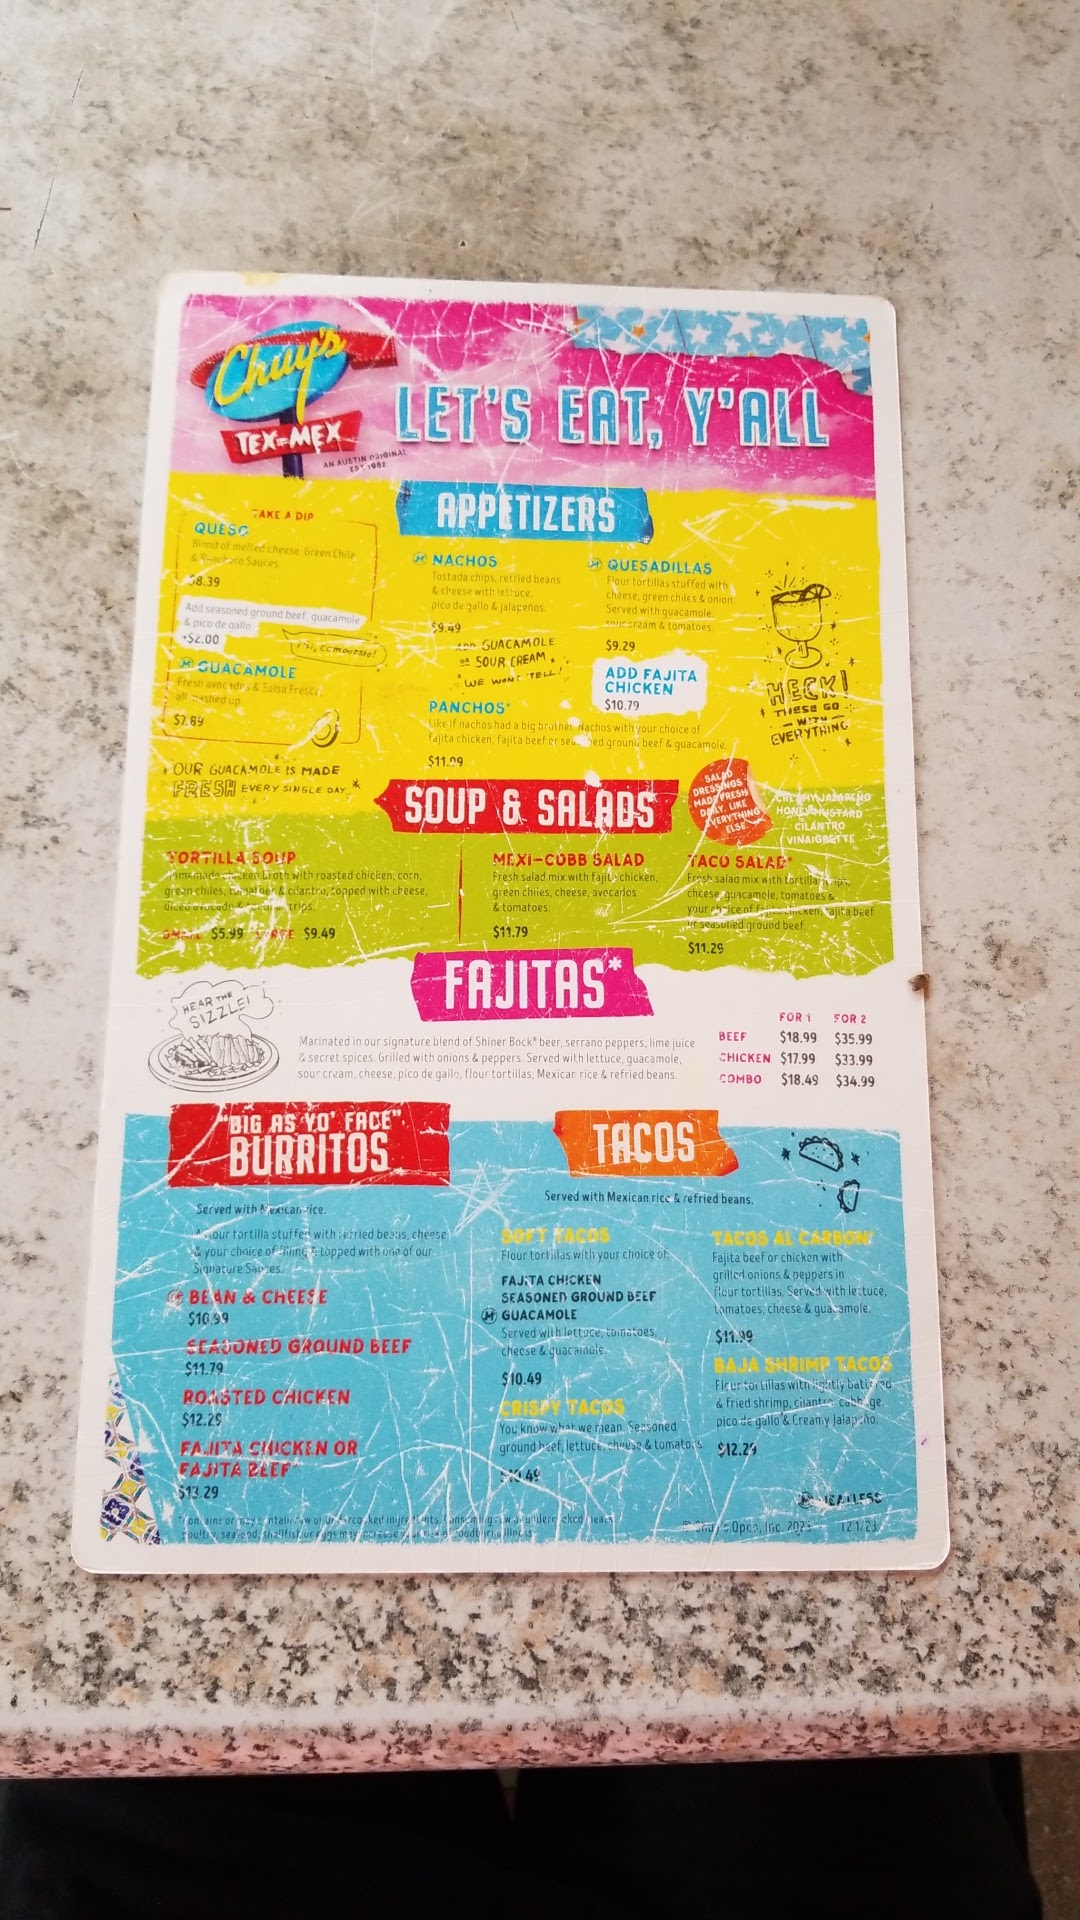 Chuy's
TEX-MEX
AN AUSTIN ORIGINAL
EST. 1982
LET'S EAT, Y'ALL
APPETIZERS
TAKE A DIP
QUESO
Blend of melted cheese, Green Chile
& Ranchero Sauces.
$8.39
Add seasoned ground beef, guacamole
& pico de gallo
+$2.00
¡Sí, compuesto!
M GUACAMOLE
Fresh avocados & Salsa Fresca,
all mashed up.
$7.89
OUR GUACAMOLE IS MADE
FRESH EVERY SINGLE DAY
M NACHOS
Tostada chips, refried beans
& cheese with lettuce,
pico de gallo & jalapeños.
$9.49
ADD GUACAMOLE
OR SOUR CREAM,
WE WON'T TELL!
M QUESADILLAS
Flour tortillas stuffed with
cheese, green chiles & onion.
Served with guacamole,
sour cream & tomatoes.
$9.29
ADD FAJITA
CHICKEN
$10.79
PANCHOS*
Like if nachos had a big brother. Nachos with your choice of
fajita chicken, fajita beef or seasoned ground beef & guacamole.
$11.99
HECK!
THESE GO
WITH
EVERYTHING
SOUP & SALADS
SALAD
DRESSINGS
MADE FRESH
DAILY. LIKE
EVERYTHING
ELSE.
CREAMY JALAPEÑO
HONEY MUSTARD
CILANTRO
VINAIGRETTE
TORTILLA SOUP
Homemade chicken broth with roasted chicken, corn,
green chiles, tomatoes & cilantro, topped with cheese,
diced avocado & tortilla strips.
SMALL $5.99 LARGE $9.49
MEXI-COBB SALAD
Fresh salad mix with fajita chicken,
green chiles, cheese, avocados
& tomatoes.
$11.79
TACO SALAD*
Fresh salad mix with tortilla strips,
cheese, guacamole, tomatoes &
your choice of fajita chicken, fajita beef
or seasoned ground beef.
$11.29
FAJITAS*
HEAR THE
SIZZLE!
Marinated in our signature blend of Shiner Bock® beer, serrano peppers, lime juice
& secret spices. Grilled with onions & peppers. Served with lettuce, guacamole,
sour cream, cheese, pico de gallo, flour tortillas, Mexican rice & refried beans.
FOR 1 FOR 2
BEEF $18.99 $35.99
CHICKEN $17.99 $33.99
COMBO $18.49 $34.99
"BIG AS YO' FACE"
BURRITOS
Served with Mexican rice.
A flour tortilla stuffed with refried beans, cheese
& your choice of filling & topped with one of our
Signature Sauces.
M BEAN & CHEESE
$10.99
SEASONED GROUND BEEF
$11.79
ROASTED CHICKEN
$12.29
FAJITA CHICKEN OR
FAJITA BEEF*
$13.29
TACOS
Served with Mexican rice & refried beans.
SOFT TACOS
Flour tortillas with your choice of:
FAJITA CHICKEN
SEASONED GROUND BEEF
M GUACAMOLE
Served with lettuce, tomatoes,
cheese & guacamole.
$10.49
CRISPY TACOS
You know what we mean. Seasoned
ground beef, lettuce, cheese & tomatoes.
$10.49
TACOS AL CARBON*
Fajita beef or chicken with
grilled onions & peppers in
flour tortillas. Served with lettuce,
tomatoes, cheese & guacamole.
$11.99
BAJA SHRIMP TACOS
Flour tortillas with lightly battered
& fried shrimp, cilantro, cabbage,
pico de gallo & Creamy Jalapeño.
$12.29
M MEATLESS
*Contains or may contain raw or undercooked ingredients. Consuming raw or undercooked meats,
poultry, seafood, shellfish, or eggs may increase your risk of foodborne illness.
© Chuy's Opco, Inc. 2023 12.1.23